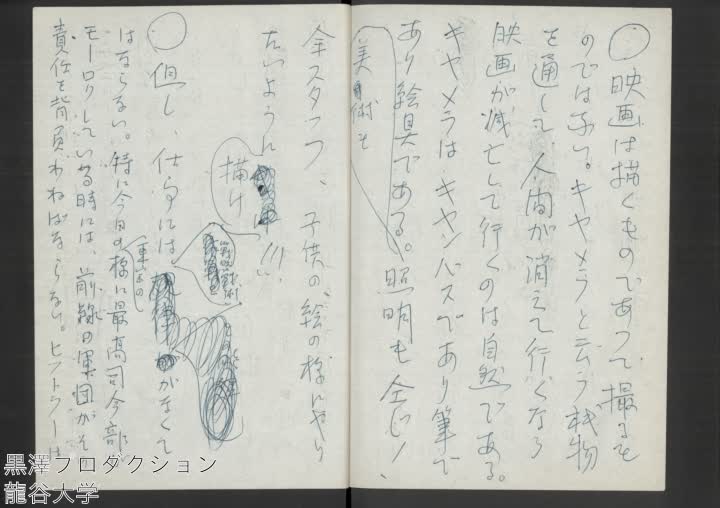 ○映画は描くものであつて撮るも
のではない。キヤメラと云う機械
を通して、人間が消えて行くなら
映画が滅亡して行くのは自然である。
キヤメラはキヤンバスであり筆で
あり絵具である。照明も全じ、
美術も
全スタッフ、子供の絵の様にやり
たいように
描け
!!!
○但し、仕事には規律がなくて
はならない。特に今日の様に最高司令部
モーロクしている時には、前線の軍団がそ
責任を背負わねばならない。ヒットラーは
黒澤プロダクション
龍谷大学